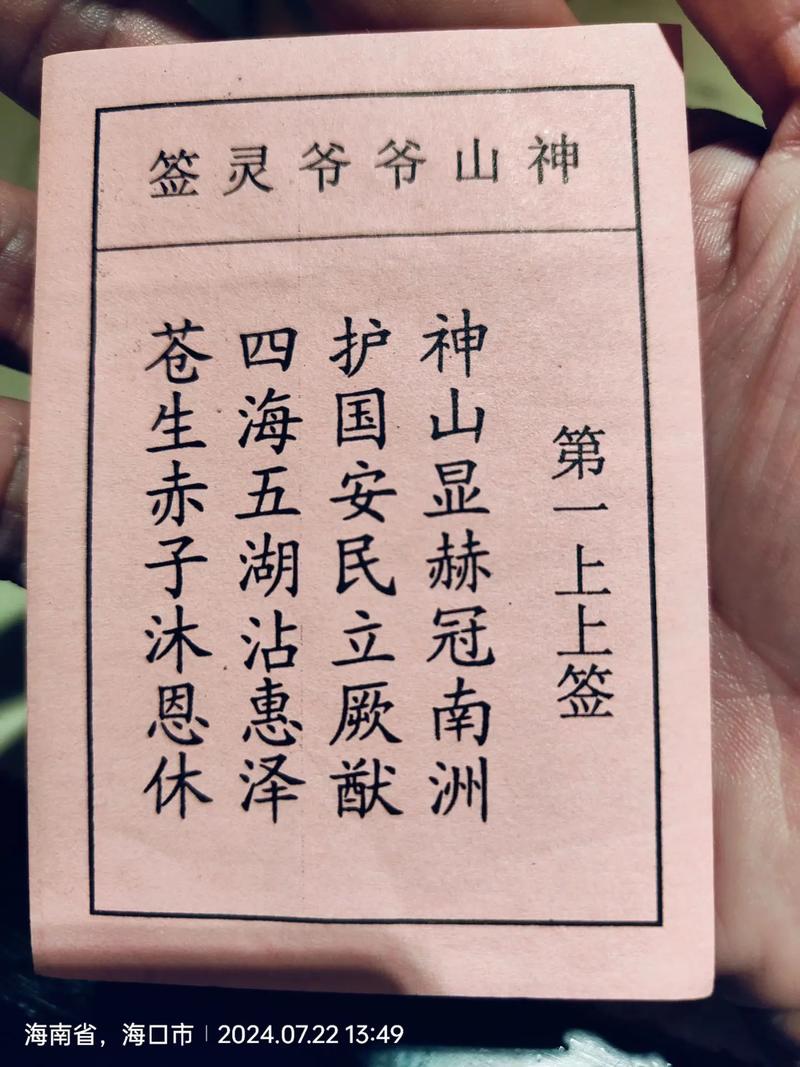 神山爷爷灵签
第一上上签
神山显赫冠南洲
护国安民立厥猷
四海五湖沾惠泽
苍生赤子沐恩休
海南省，海口市 | 2024.07.22 13:49